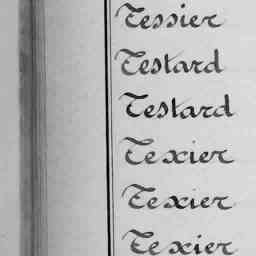 Tessier
Testard
Testard
Texier
Texier
Texier